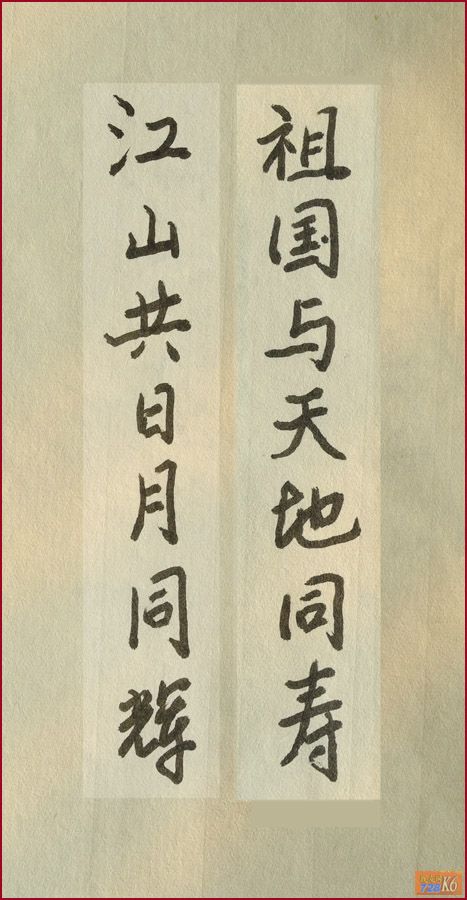 祖国与天地同寿
江山共日月同辉
K6